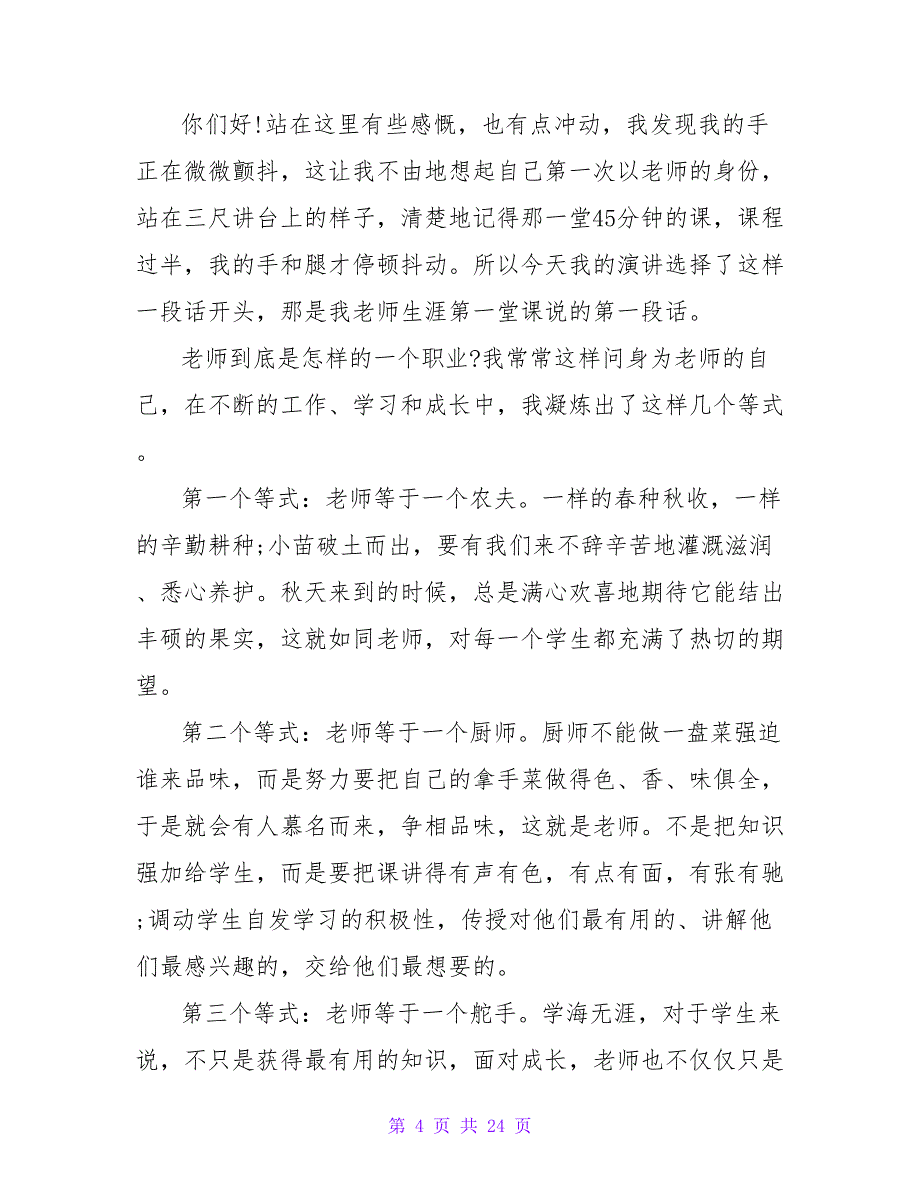 你们好!站在这里有些感慨，也有点冲动，我发现我的手
正在微微颤抖，这让我不由地想起自己第一次以老师的身份，
站在三尺讲台上的样子，清楚地记得那一堂45分钟的课，课程
过半，我的手和腿才停顿抖动。所以今天我的演讲选择了这样
一段话开头，那是我老师生涯第一堂课说的第一段话。
老师到底是怎样的一个职业?我常常这样问身为老师的自
己，在不断的工作、学习和成长中，我凝炼出了这样几个等式
。
第一个等式：老师等于一个农夫。一样的春种秋收，一样
的辛勤耕种;小苗破土而出，要有我们来不辞辛苦地灌溉滋润
、悉心养护。秋天来到的时候，总是满心欢喜地期待它能结出
丰硕的果实，这就如同老师，对每一个学生都充满了热切的期
望。
第二个等式：老师等于一个厨师。厨师不能做一盘菜强迫
谁来品味，而是努力要把自己的拿手菜做得色、香、味俱全，
于是就会有人慕名而来，争相品味，这就是老师。不是把知识
强加给学生，而是要把课讲得有声有色，有点有面，有张有驰
;调动学生自发学习的积极性，传授对他们最有用的、讲解他
们最感兴趣的，交给他们最想要的。
第三个等式：老师等于一个舵手。学海无涯，对于学生来
说，不只是获得最有用的知识，面对成长，老师也不仅仅只是
第 4 页 共 24 页